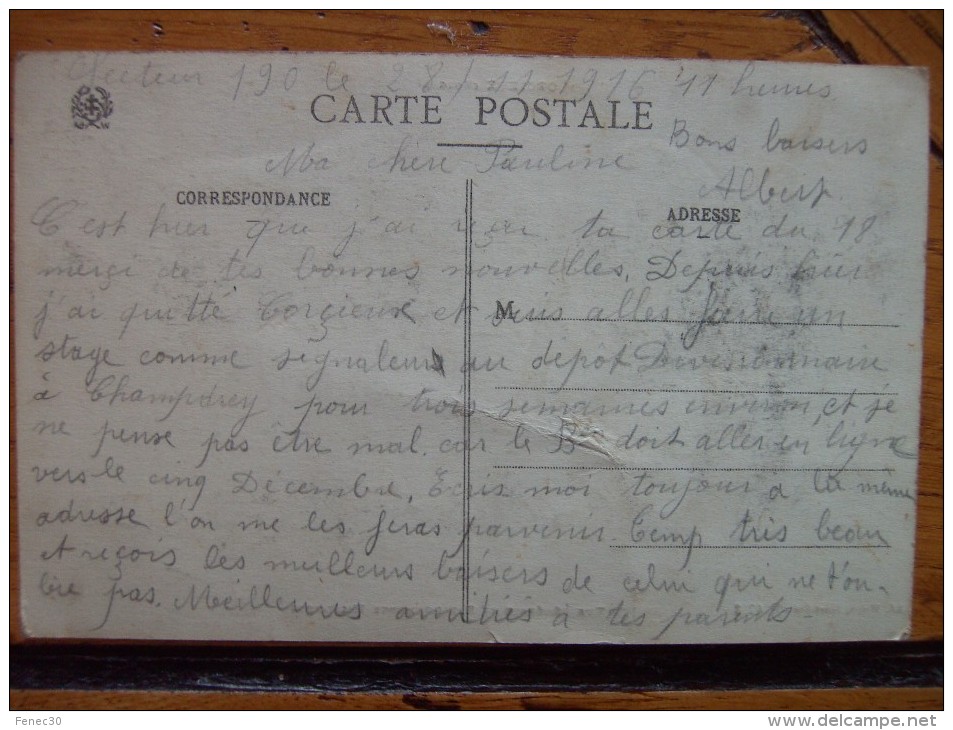 Secteur 190 le 28/11 1916 11 heures
CARTE POSTALE
Bons baisers
Albert
Ma chère Pauline
CORRESPONDANCE
ADRESSE
C'est hier que j'ai reçu ta carte du 18
merçi de tes bonnes nouvelles. Depuis hier
j'ai quitté Corçieux et suis aller faire un
M
stage comme signaleur au dépôt Divisionnaire
à Champdrey pour trois semaines environ, et je
ne pense pas être mal. car le Bon doit aller en ligne
vers le cinq Décembre. Ecris moi toujour à la même
adresse l'on me les feras parvenir. Temp très beau
et reçois les meilleurs baisers de celui qui ne t'ou-
blie pas. Meilleures amitiés à tes parents-
Fenec30
www.delcampe.net